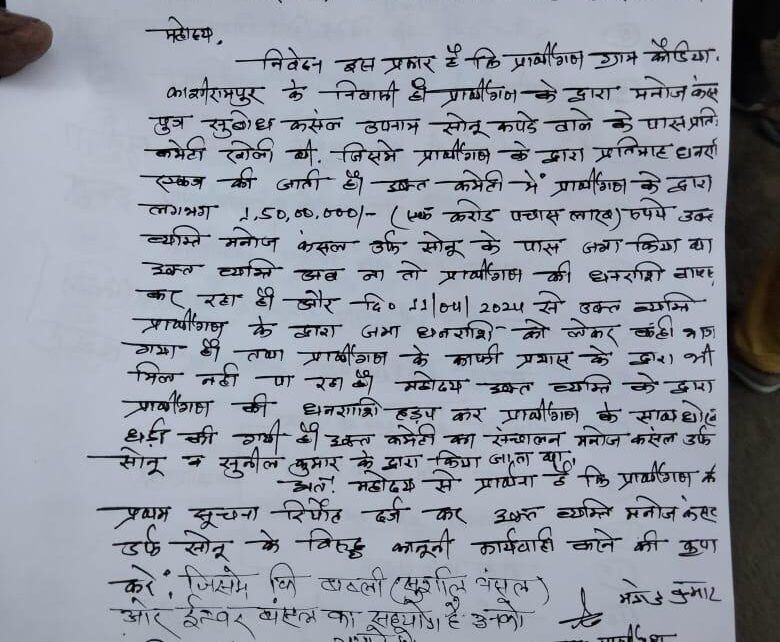 महोदय,
निवेदन इस प्रकार है कि प्रार्थीगण ग्राम कौडिया,
काशीरामपुर के निवासी है प्रार्थीगण के द्वारा मनोज कंसल
पुत्र सुबोध कसंल उपनाम सोनू कपडे वाले के पास प्रति
कमेटी खोली थी. जिसमे प्रार्थीगण के द्वारा प्रतिमाह धनराशि
एकत्र की जाती है। उक्त कमेटी में प्रार्थीगण के द्वारा
लगभग 1,50,00,000/- (एक करोड पच्चास लाख) रुपये उक्त
व्यक्ति मनोज कंसल उर्फ सोनू के पास जमा किया था
उक्त व्यक्ति अब ना तो प्रार्थीगण की धनराशि वापस
कर रहा है। और दि० 11/04/2024 से उक्त व्यक्ति
प्रार्थीगण के द्वारा जमा धनराशि को लेकर कही भाग
गया है। तथा प्रार्थीगण के काफी प्रयास के द्वारा भी
मिल नही पा रहा है। महोदय उक्त व्यक्ति के द्वारा
प्रार्थीगण की धनराशि हड़प कर प्रार्थीगण के साथ धोखा
धड़ी की गयी है। उक्त कमेटी का संचालन मनोज कसंल उर्फ
सोनू व सुनील कुमार के द्वारा किया जाता था,
अतः महोदय से प्रार्थना है कि प्रार्थीगण के
प्रथम सूचना रिर्पोट दर्ज कर उक्त व्यक्ति मनोज कंसल
उर्फ सोनू के विरुद्ध कानूनी कार्यवाही करने की कृपा
करें। जिसमे कि बबली (सुशील बंसल)
और ईश्वर बंसल का सहयोग है उनको
कुमार